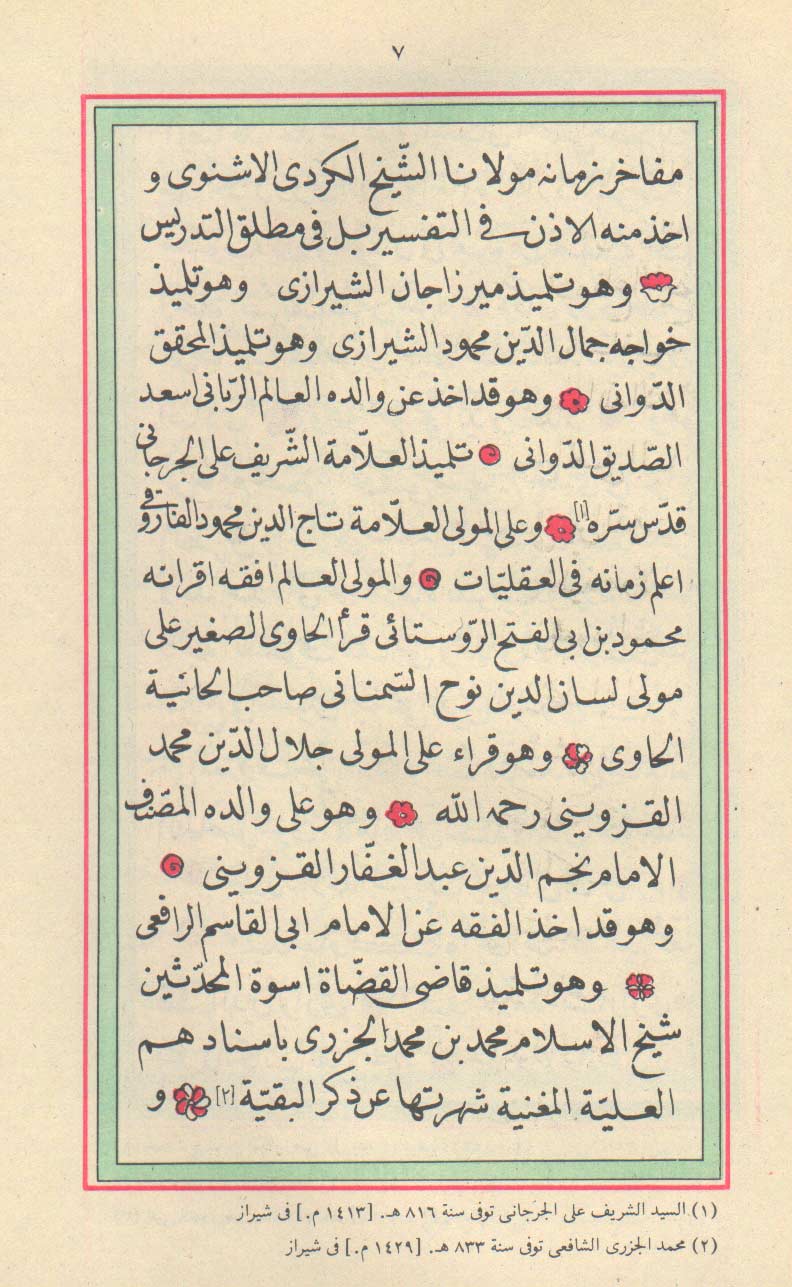 ٧
مفاخر زمانه مولانا الشّيخ الكردى الاشنوى و
اخذ منه الاذن فى التفسير بل فى مطلق التدريس
وهو تلميذ ميرزاجان الشيرازى وهو تلميذ
خواجه جمال الدّين محمود الشيرازى وهو تلميذ المحقق
الدّوانى وهو قد اخذ عن والده العالم الرّبانى اسعد
الصّديق الدّوانى تلميذ العلّامة الشّريف على الجرجانى
قدّس سرّه [١] وعلى المولى العلّامة تاج الدين محمود الفاروقى
اعلم زمانه فى العقليّات والمولى العالم افقه اقرانه
محمود بن ابى الفتح الرّوستائى قرأ الحاوى الصغير على
مولى لسان الدين نوح السّمنانى صاحب الحانية
الحاوى وهو قراء على المولى جلال الدّين محمد
القزوينى رحمه اللّه وهو على والده المصّنف
الامام نجم الدّين عبد الغفّار القزوينى
وهو قد اخذ الفقه عن الامام ابى القاسم الرافعى
وهو تلميذ قاضى القضّاة اسوة المحدّثين
شيخ الاسلام محمد بن محمد الجزرى باسناد هم
العليّة المغنية شهرتها عن ذكر البقيّة [٢] و
(١) السيد الشريف على الجرجانى توفى سنة ٨١٦ هـ. [١٤١٣ م.] فى شيراز
(٢) محمد الجزرى الشافعى توفى سنة ٨٣٣ هـ. [١٤٢٩ م.] فى شيراز